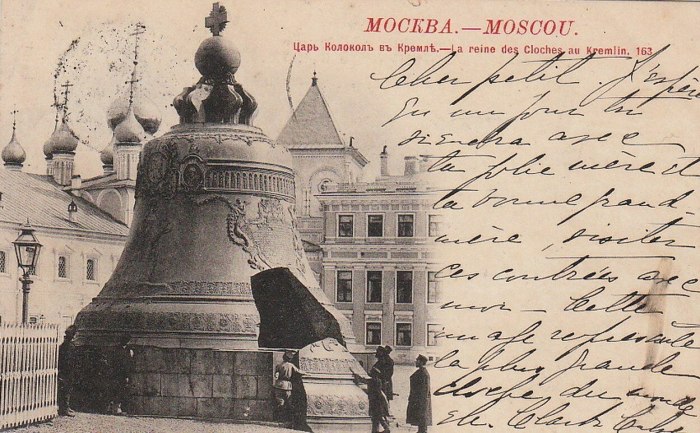 МОСКВА.—MOSCOU.
Царь Колоколъ въ Кремлѣ.—La reine des Cloches au Kremlin. 163
Cher petit. J'espère
qu'un jour tu
viendra avec
ta jolie mère et
ta bonne grand
mère, visiter
ces contrées avec
moi — Cette
image représente
la plus grande
cloche du monde